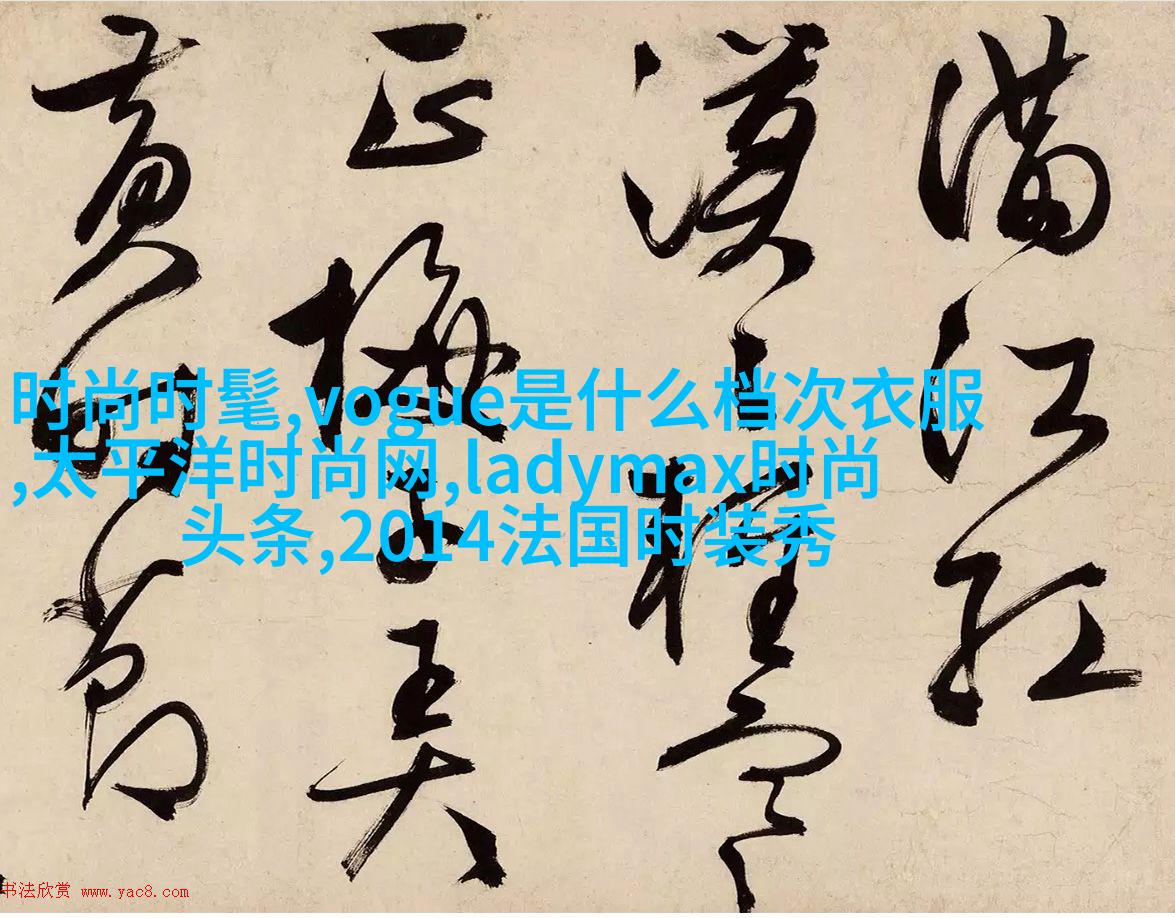 滿江紅
漠々輕陰
正梅子弄
黃時節
时尚时髦,vogue是什么档次衣服
,太平洋时尚网,ladymax时尚
头条,2014法国时装秀
书法欣赏 www.yac8.com